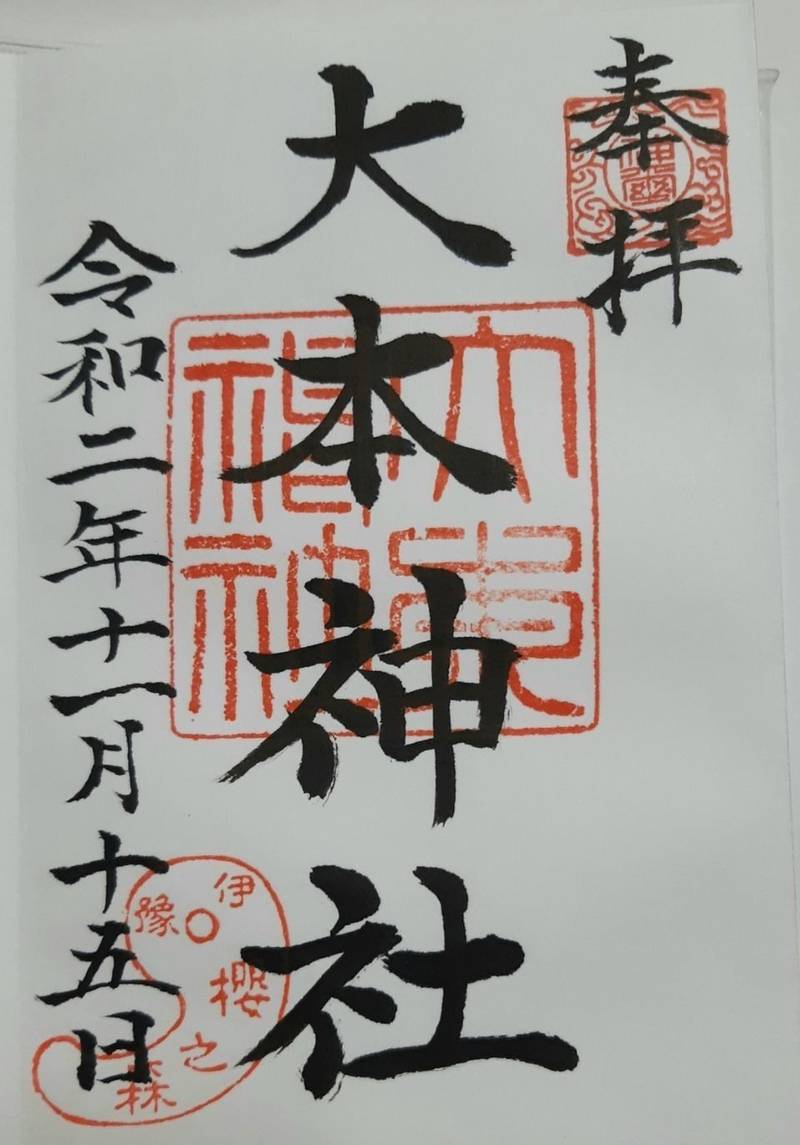 奉拝
大本神社
令和二年十一月十五日
伊豫
櫻之森